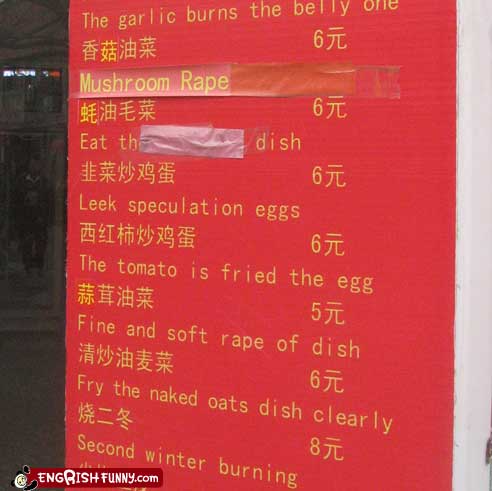 The garlic burns the belly one
香菇油菜 6元
Mushroom Rape
蚝油毛菜 6元
Eat th dish
韭菜炒鸡蛋 6元
Leek speculation eggs
西红柿炒鸡蛋 6元
The tomato is fried the egg
蒜茸油菜 5元
Fine and soft rape of dish
清炒油麦菜 6元
Fry the naked oats dish clearly
烧二冬 8元
Second winter burning
ENGRISHFUNNY.COM